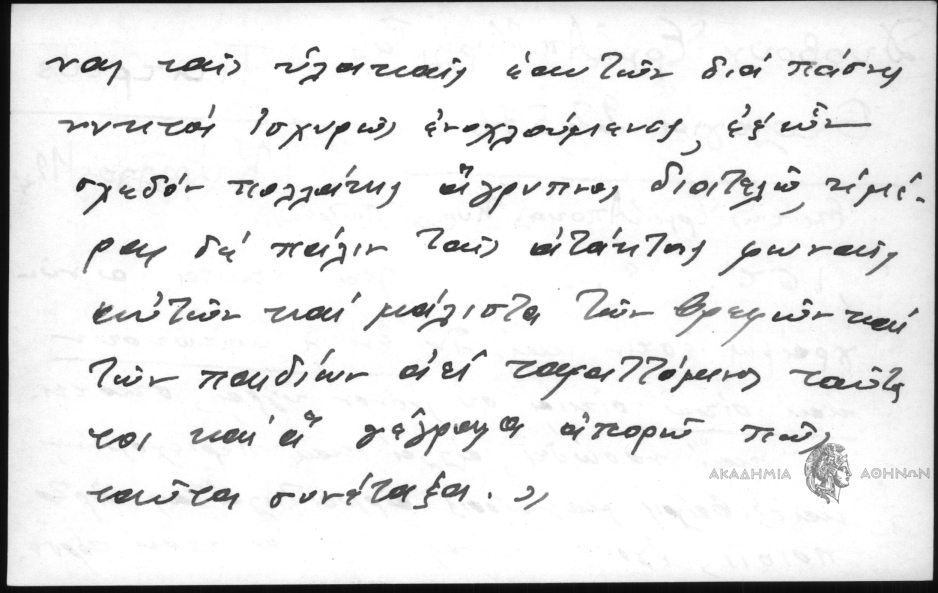 νας ταῖς ὑλακαῖς ἑαυτῶν διά πάσης
νυκτός ἰσχυρῶς ἐνοχλούμενος, ἐξ ὧν
σχεδόν πολλάκις ἄγρυπνος διατελῶ, ἡμέ-
ρας δέ πάλιν ταῖς ἀτάκτοις φωναῖς
αὐτῶν καί μάλιστα τῶν βρεφῶν καί
τῶν παιδίων ἀεί ταραττόμενος ταῦτα
τοι καί ἅ γέγραφα ἀπορῶ πῶς
ταῦτα συνέταξα. »
ΑΚΑΔΗΜΙΑ ΑΘΗΝΩΝ